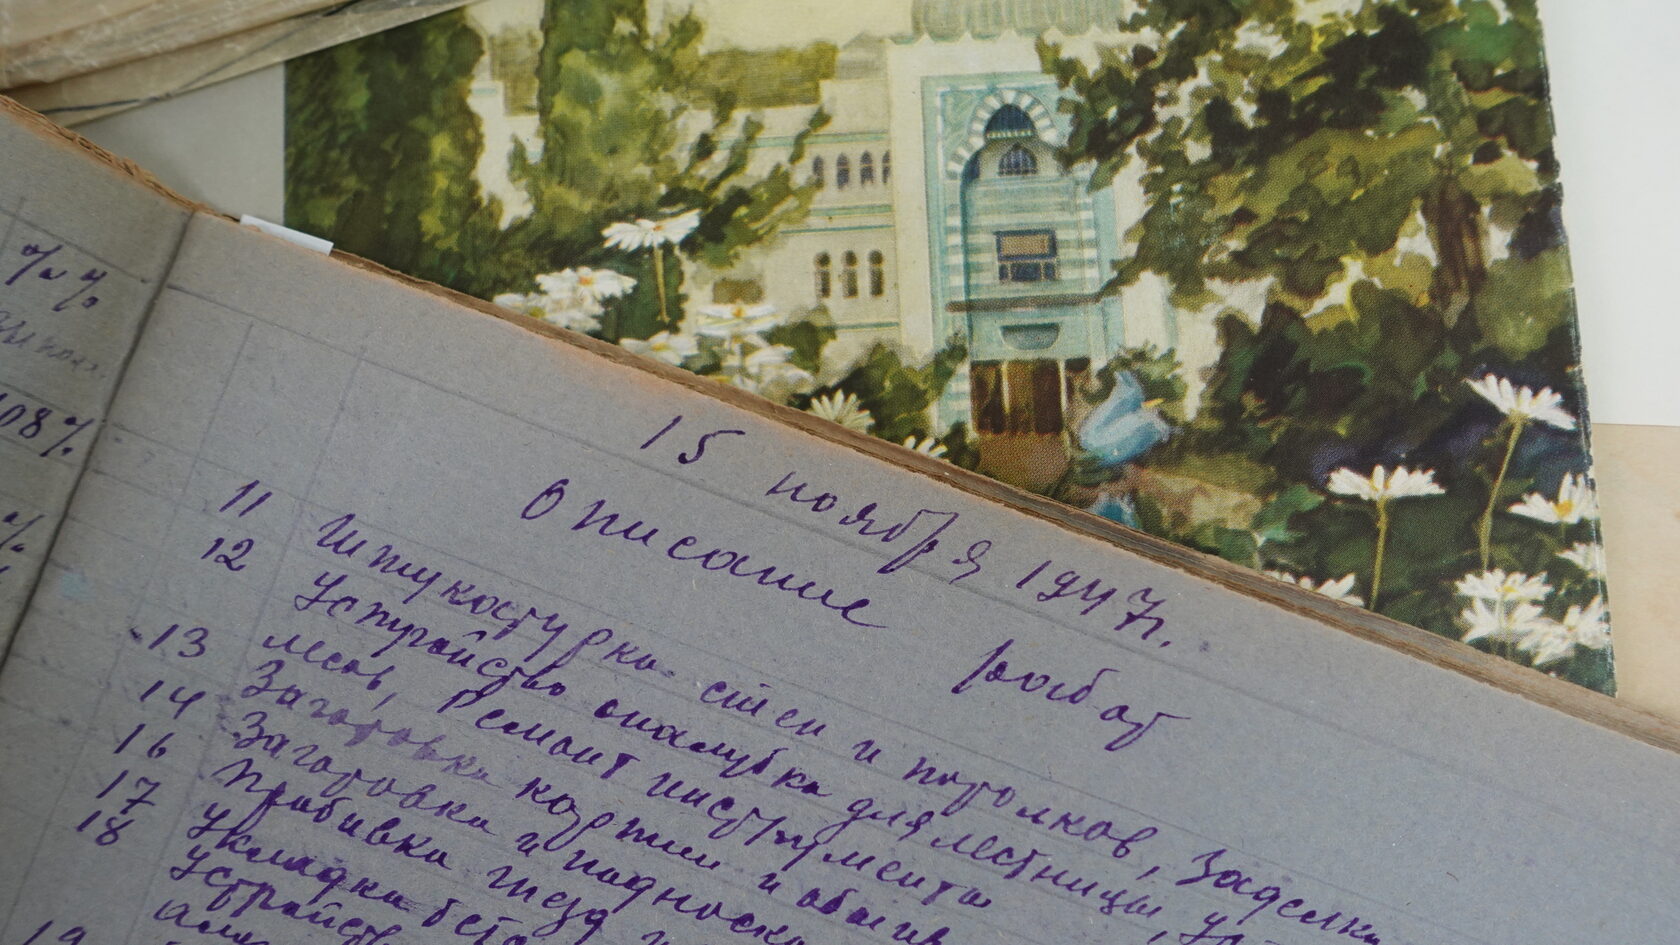 108%
15 ноября 1947г.
Описание работ
11 Штукатурка стен и потолков, Заделка
12 Устройство опалубки для лестницы, ус
лесов, Ремонт инструмента
13 Заготовка и
14 Заготовка и подноска
16 Пробивка гнезд
17 Укладка бето
18 Устройств
19